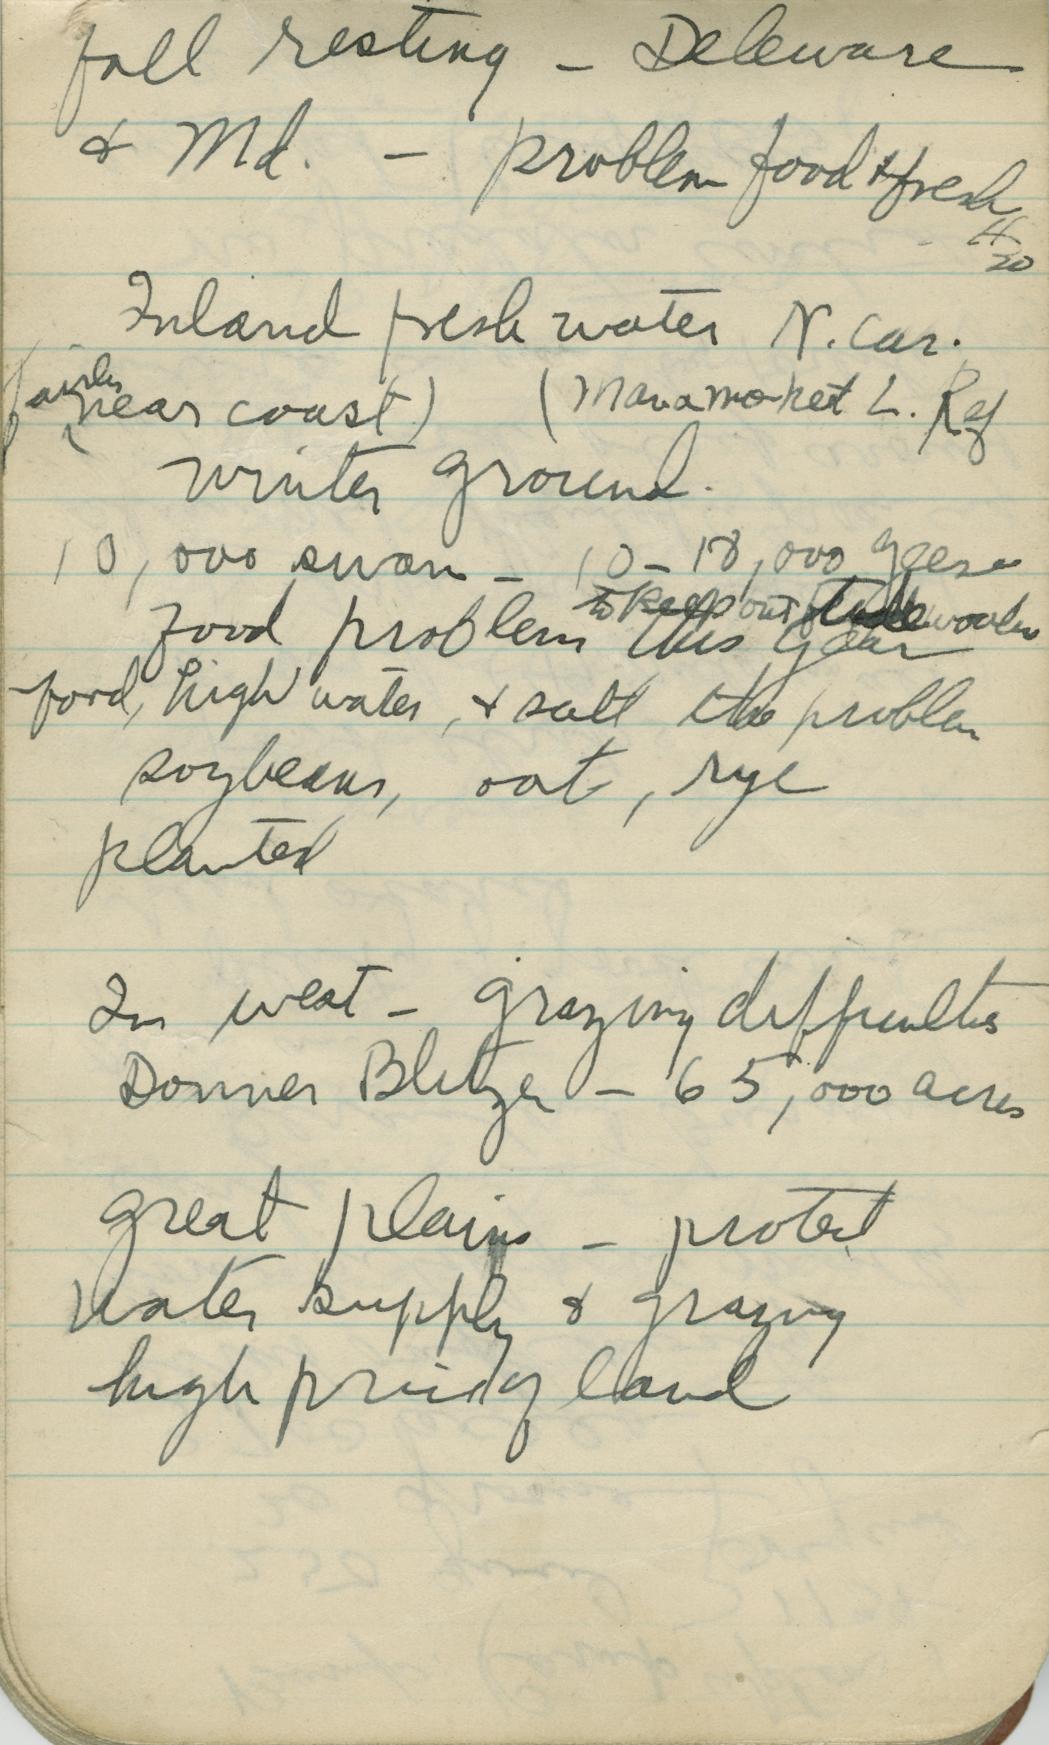 fall resting – Deleware
& Md. – problem food & fresh
H20
Inland fresh water N. Car.
fairly near coast) (Manamosket L. Ref
winter ground.
10,000 swan – 10–18,000 geese
to keep out
food problem this year
food, high water, & salt the problem
soybeans, oat, rye
planted
In west – grazing difficulties
Donner Blitzen – 65,000 acres
great plains – protect
water supply & grazing
high pricing land